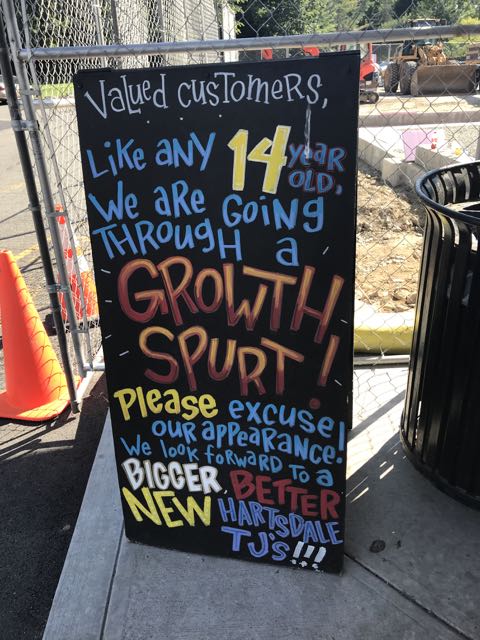 Valued customers,
Like any 14 year
old,
We are going
through a
GROWTH
SPURT!
Please excuse
our appearance!
We look forward to a
BIGGER, BETTER
NEW HARTSDALE
TJ's!!!